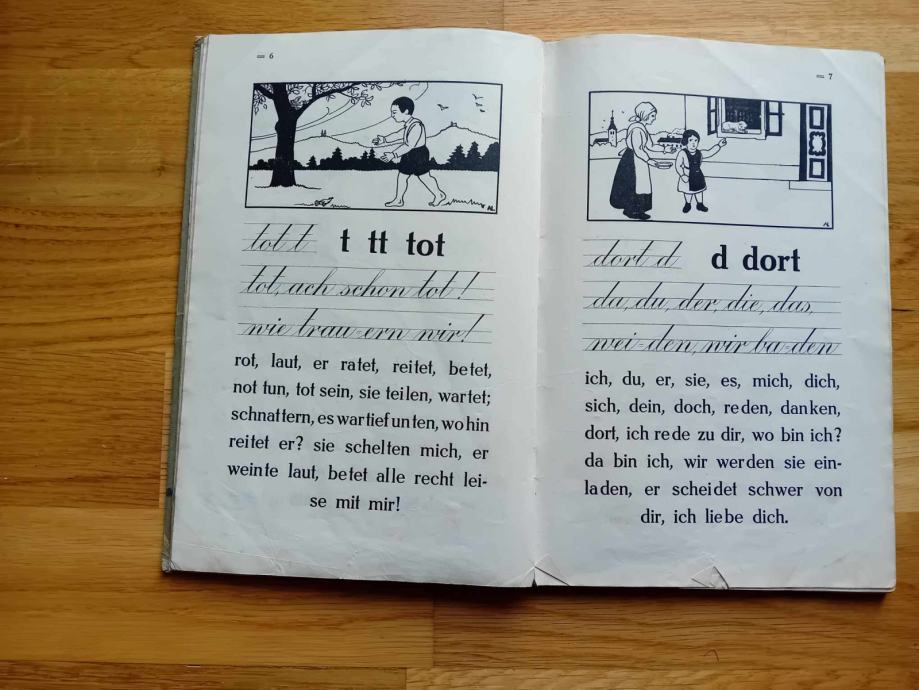 = 6
tot t t tt tot
tot, ach schon tot!
wie trau-ern wir!
rot, laut, er ratet, reitet, betet,
not tun, tot sein, sie teilen, wartet;
schnattern, es war tief unten, wohin
reitet er? sie schelten mich, er
weinte laut, betet alle recht lei-
se mit mir!
= 7
dort d d dort
da, du, der, die, das,
wei-den, wir ba-den
ich, du, er, sie, es, mich, dich,
sich, dein, doch, reden, danken,
dort, ich rede zu dir, wo bin ich?
da bin ich, wir werden sie ein-
laden, er scheidet schwer von
dir, ich liebe dich.